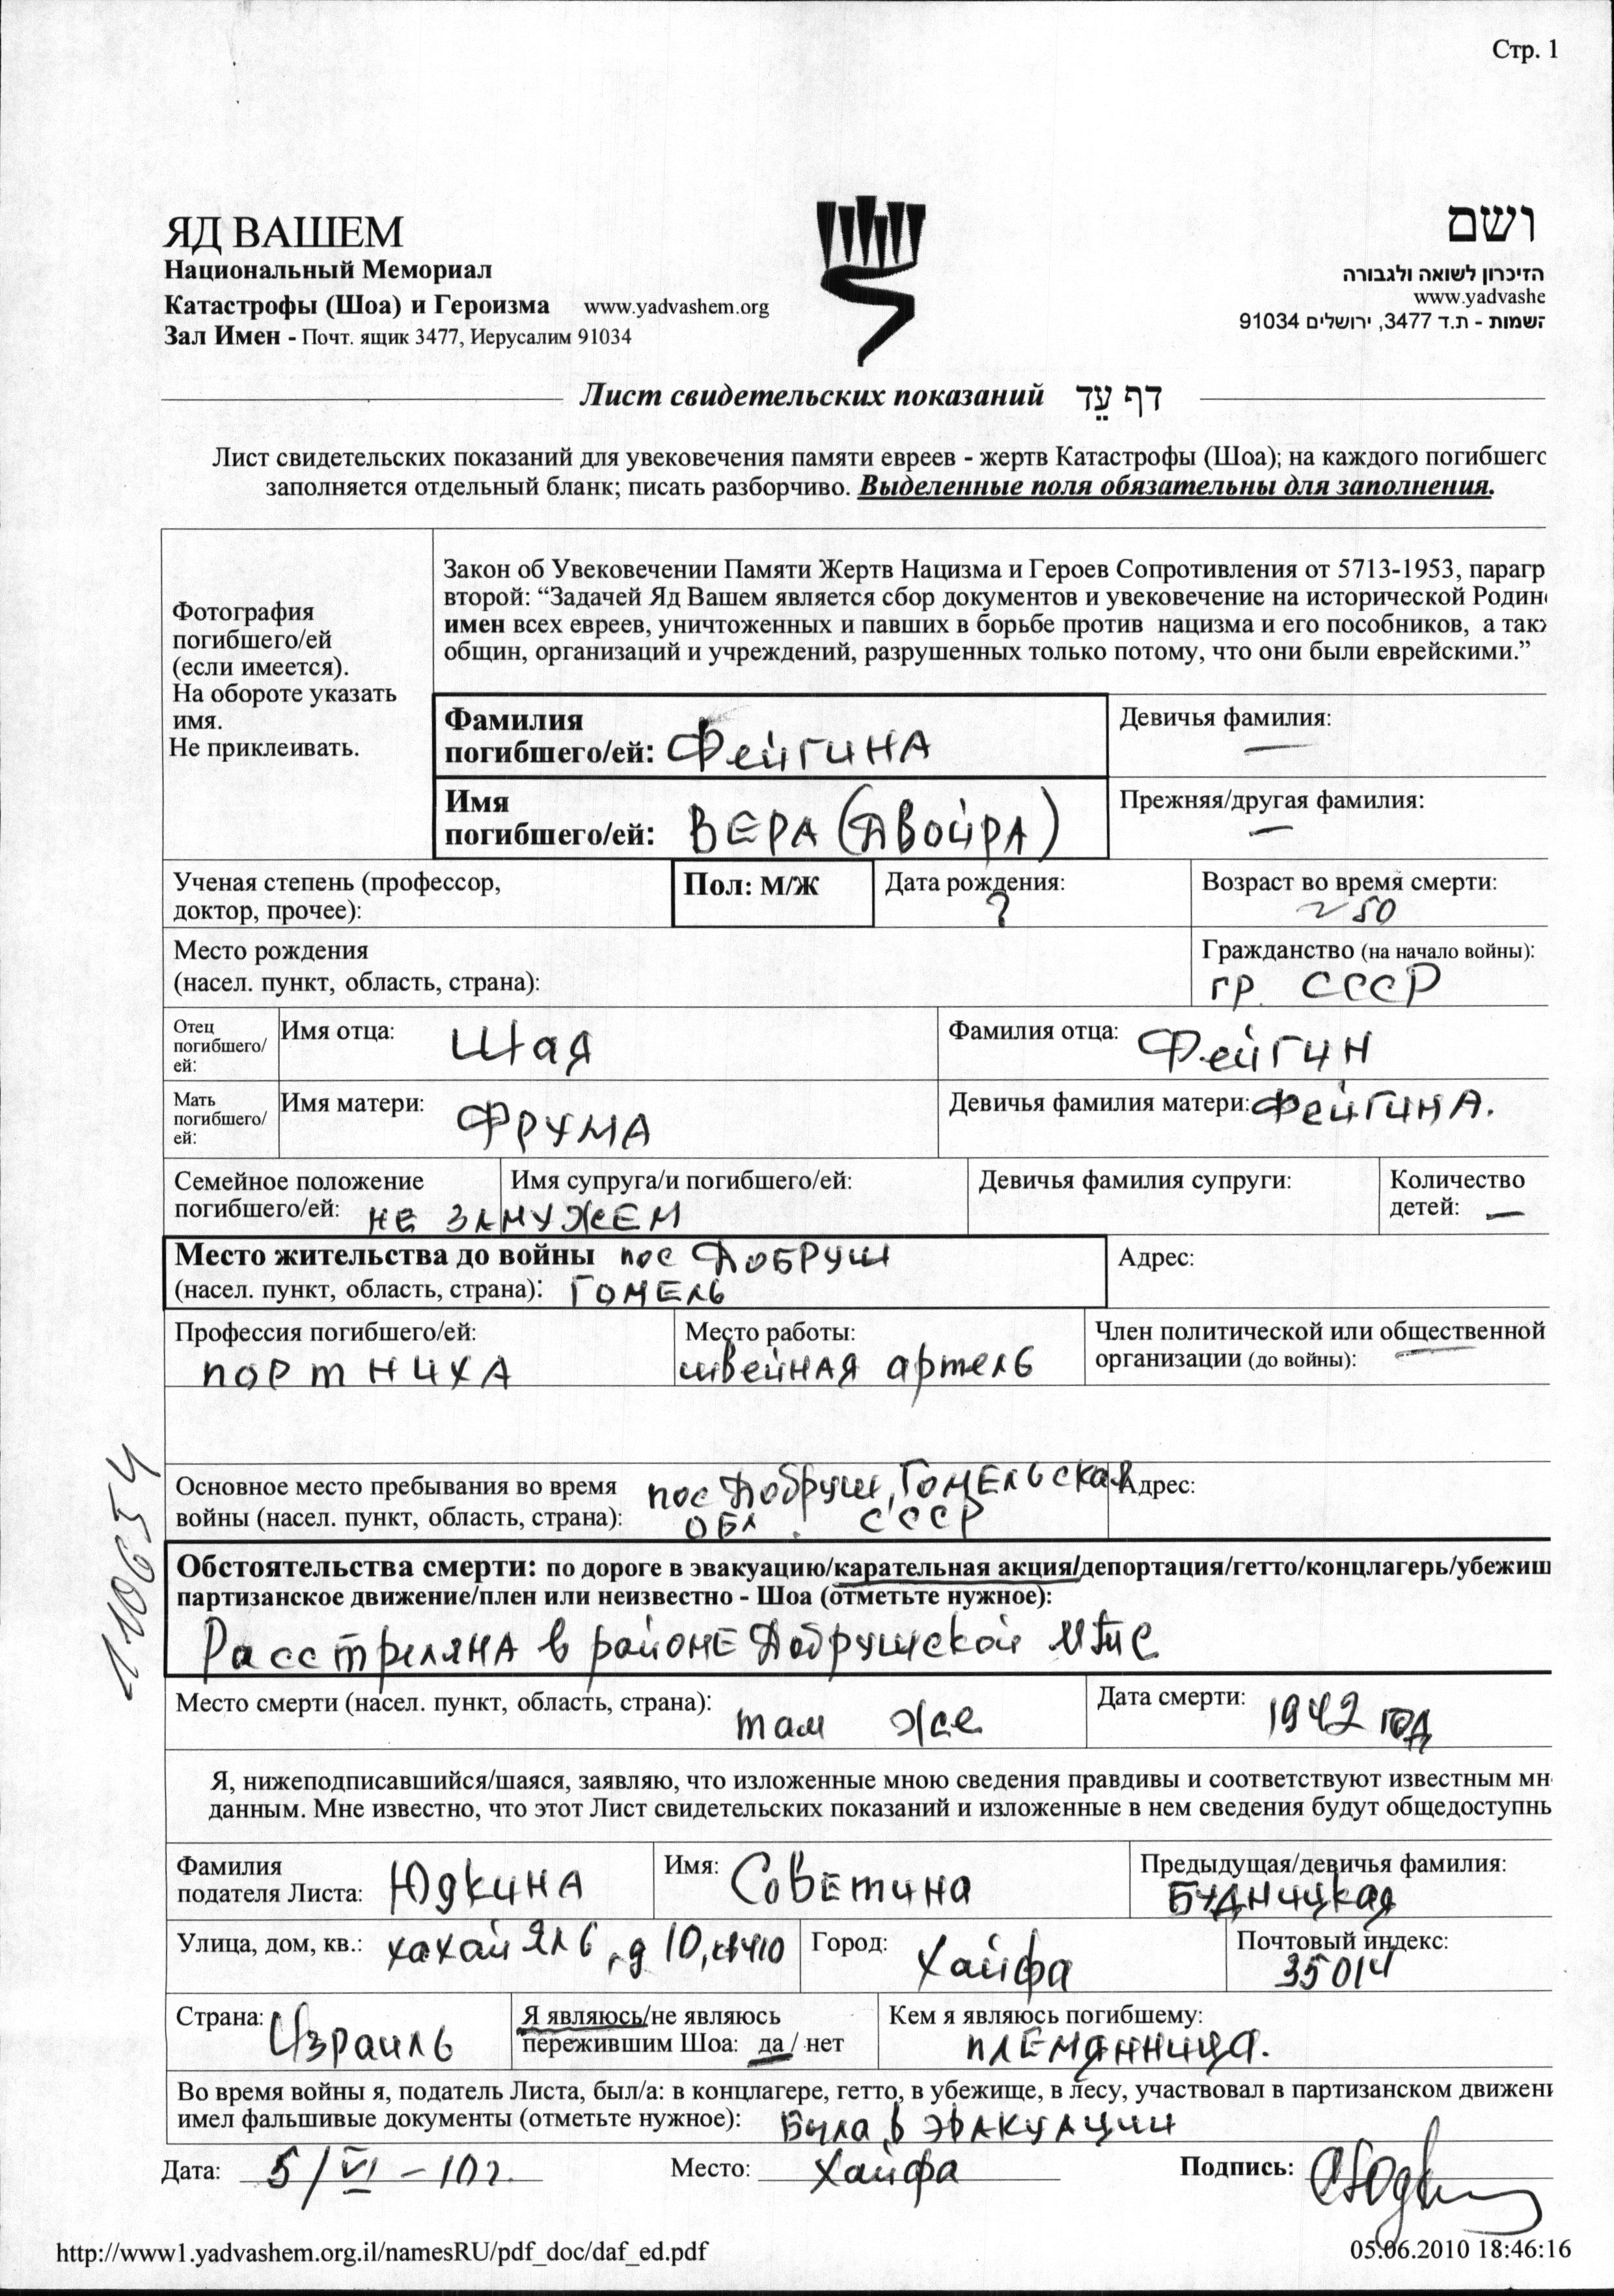 Стр. 1
ЯД ВАШЕМ
ושם
Национальный Мемориал
הזיכרון לשואה ולגבורה
Катастрофы (Шоа) и Героизма www.yadvashem.org
www.yadvashe
Зал Имен - Почт. ящик 3477, Иерусалим 91034
השמות - ת.ד 3477, ירושלים 91034
Лист свидетельских показаний דף עֵד
Лист свидетельских показаний для увековечения памяти евреев - жертв Катастрофы (Шоа); на каждого погибшегс
заполняется отдельный бланк; писать разборчиво. Выделенные поля обязательны для заполнения.
Фотография
погибшего/ей
(если имеется).
На обороте указать
имя.
Не приклеивать.
Закон об Увековечении Памяти Жертв Нацизма и Героев Сопротивления от 5713-1953, парагр
второй: “Задачей Яд Вашем является сбор документов и увековечение на исторической Родин
имен всех евреев, уничтоженных и павших в борьбе против нацизма и его пособников, а так
общин, организаций и учреждений, разрушенных только потому, что они были еврейскими.”
Фамилия
погибшего/ей: Фейгина
Девичья фамилия:
—
Имя
погибшего/ей: ВЕРА (Двойра)
Прежняя/другая фамилия:
—
Ученая степень (профессор,
доктор, прочее):
Пол: М/Ж
Дата рождения:
?
Возраст во время смерти:
~ 50
Место рождения
(насел. пункт, область, страна):
Гражданство (на начало войны):
гр. СССР
Отец
погибшего/
ей:
Имя отца: Шая
Фамилия отца: Фейгин
Мать
погибшего/
ей:
Имя матери: Фрума
Девичья фамилия матери: Фейгина.
Семейное положение
погибшего/ей: не замужем
Имя супруга/и погибшего/ей:
Девичья фамилия супруги:
Количество
детей: —
Место жительства до войны пос Добруш
(насел. пункт, область, страна): Гомель
Адрес:
Профессия погибшего/ей:
портниха
Место работы:
швейная артель
Член политической или общественной
организации (до войны): —
Основное место пребывания во время пос Добруш, Гомельская
войны (насел. пункт, область, страна): обл. СССР
Адрес:
110654
Обстоятельства смерти: по дороге в эвакуацию/карательная акция/депортация/гетто/концлагерь/убежищ
партизанское движение/плен или неизвестно - Шоа (отметьте нужное):
Расстреляна в районе Добрушской МТС
Место смерти (насел. пункт, область, страна): там же
Дата смерти: 1942 год
Я, нижеподписавшийся/шаяся, заявляю, что изложенные мною сведения правдивы и соответствуют известным мн
данным. Мне известно, что этот Лист свидетельских показаний и изложенные в нем сведения будут общедоступнь
Фамилия
подателя Листа: Юдкина
Имя: Советина
Предыдущая/девичья фамилия:
Будницкая
Улица, дом, кв.: хахайЯл 6, д 10, кв 410
Город: Хайфа
Почтовый индекс:
35014
Страна: Израиль
Я являюсь/не являюсь
пережившим Шоа: да / нет
Кем я являюсь погибшему:
племянница.
Во время войны я, податель Листа, был/а: в концлагере, гетто, в убежище, в лесу, участвовал в партизанском движен
имел фальшивые документы (отметьте нужное): Была в эвакуации
Дата: 5/VI - 10 г.
Место: Хайфа
Подпись:
http://www1.yadvashem.org.il/namesRU/pdf_doc/daf_ed.pdf
05.06.2010 18:46:16